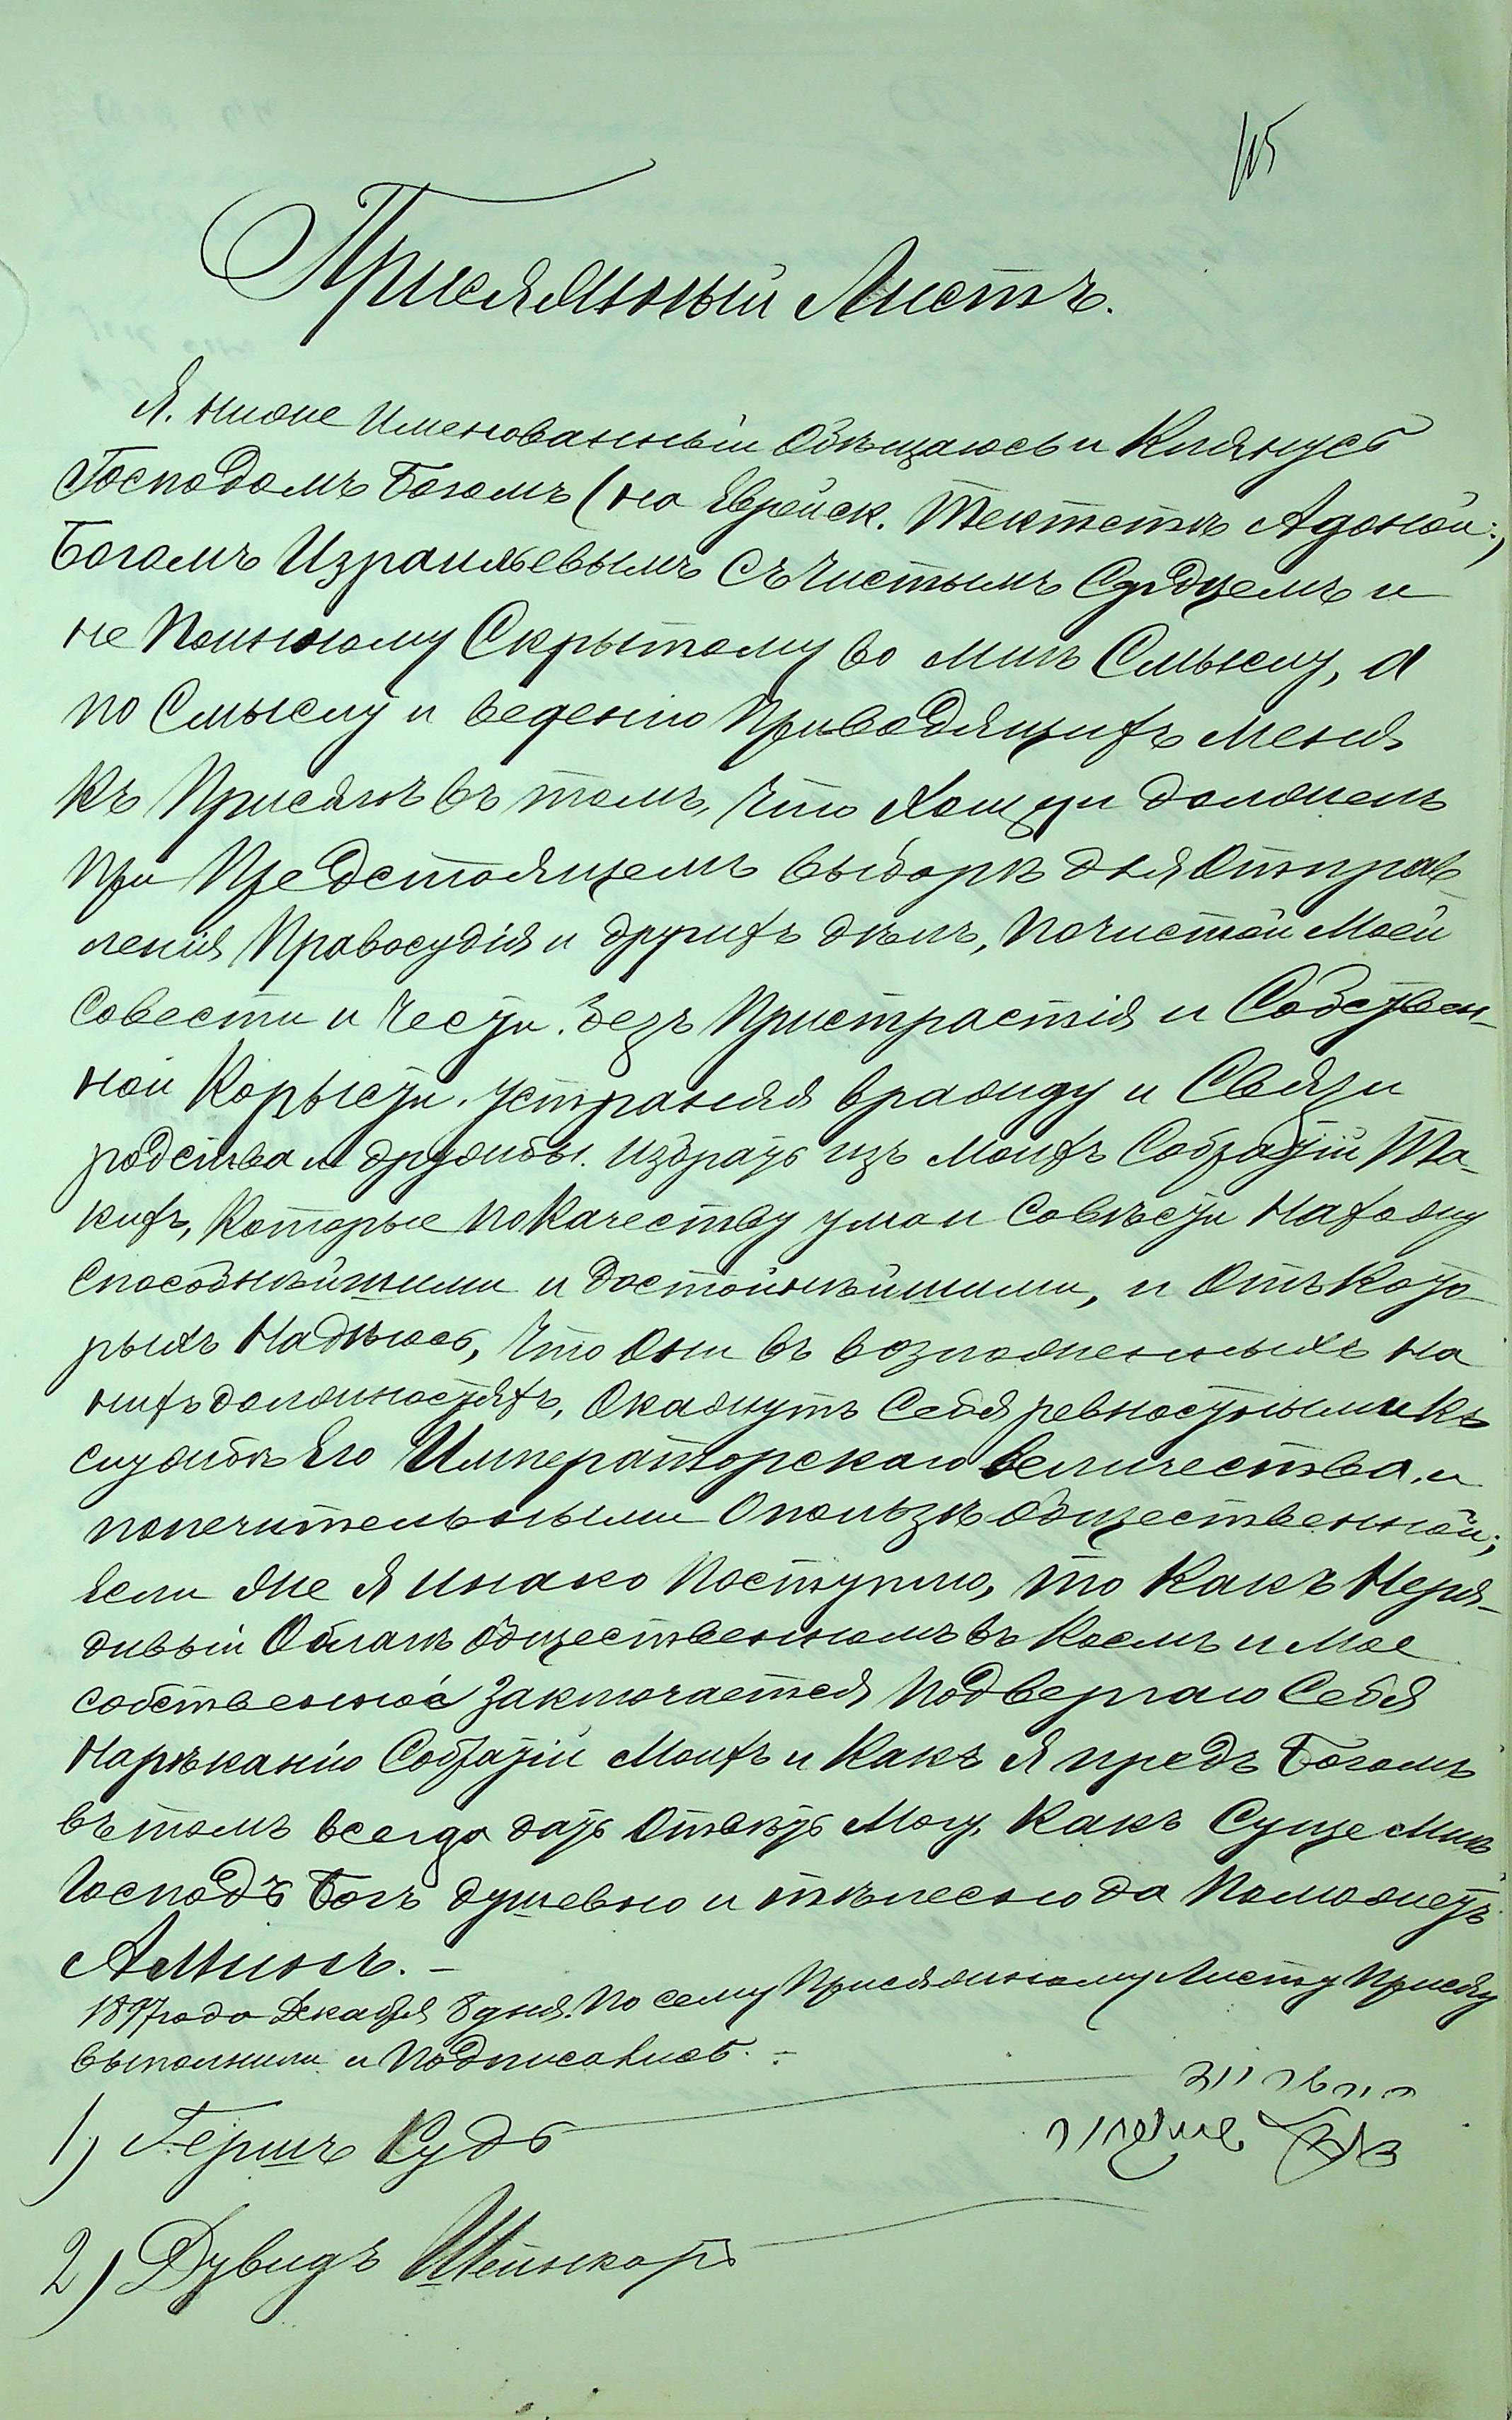 115
Присяжный Листъ.
Я. ниже Именованный Обѣщаюсь и Клянусь
Господомъ Богомъ (на Яврейск. Текстетѣ Адонои:,
Богомъ Израильевымъ Съ Чистымъ Срдцемъ и
не Поиному Скрытому во мнѣ Смыслу, а
по Смыслу и ведению Приводящихъ меня
Къ Присягѣ въ томъ, Что Хощу и долженъ
При Предстоящемъ выборѣ для Отправ-
ления Правосудія и другихъ дѣлъ, Почистой Моей
Совести и Чести. Безъ Пристрастія и Собствен-
ной Корысти. устраняя вражду и Связи
родства и дружбы. избрать изъ Моихъ Собратій Та-
кихъ, Которые по Качеству ума и Совѣсти Нахожу
Способнѣйшими и достойнѣйшими, и Отъ Кото-
рыхъ Надѣюсь, Что Они въ возложенныхъ на
нихъ должностяхъ, Окажутъ Себя ревностными Къ
службѣ Его Императорскаго Величества, и
попечительными Опользѣ общественной;
Если же Я инако Поступлю, то Какъ Неря-
дивый Облагѣ Общественномъ въ Коемъ и Мое
собственное Заключается Подвергаю Себя
Нарѣканію Собратій Моихъ и Какъ Я предъ Богомъ
въ томъ всегда дать Отвѣтъ Могу, Какъ Суще Мнѣ
Господь Богъ душевно и тѣлесно да Поможетъ
Аминь. -
1897 года Декабря 8 дня. По сему Присяжному Листу Присягу
выполнили и Подписались. -
1) Гершъ Кудь
2) Дувидъ Штейнкорь